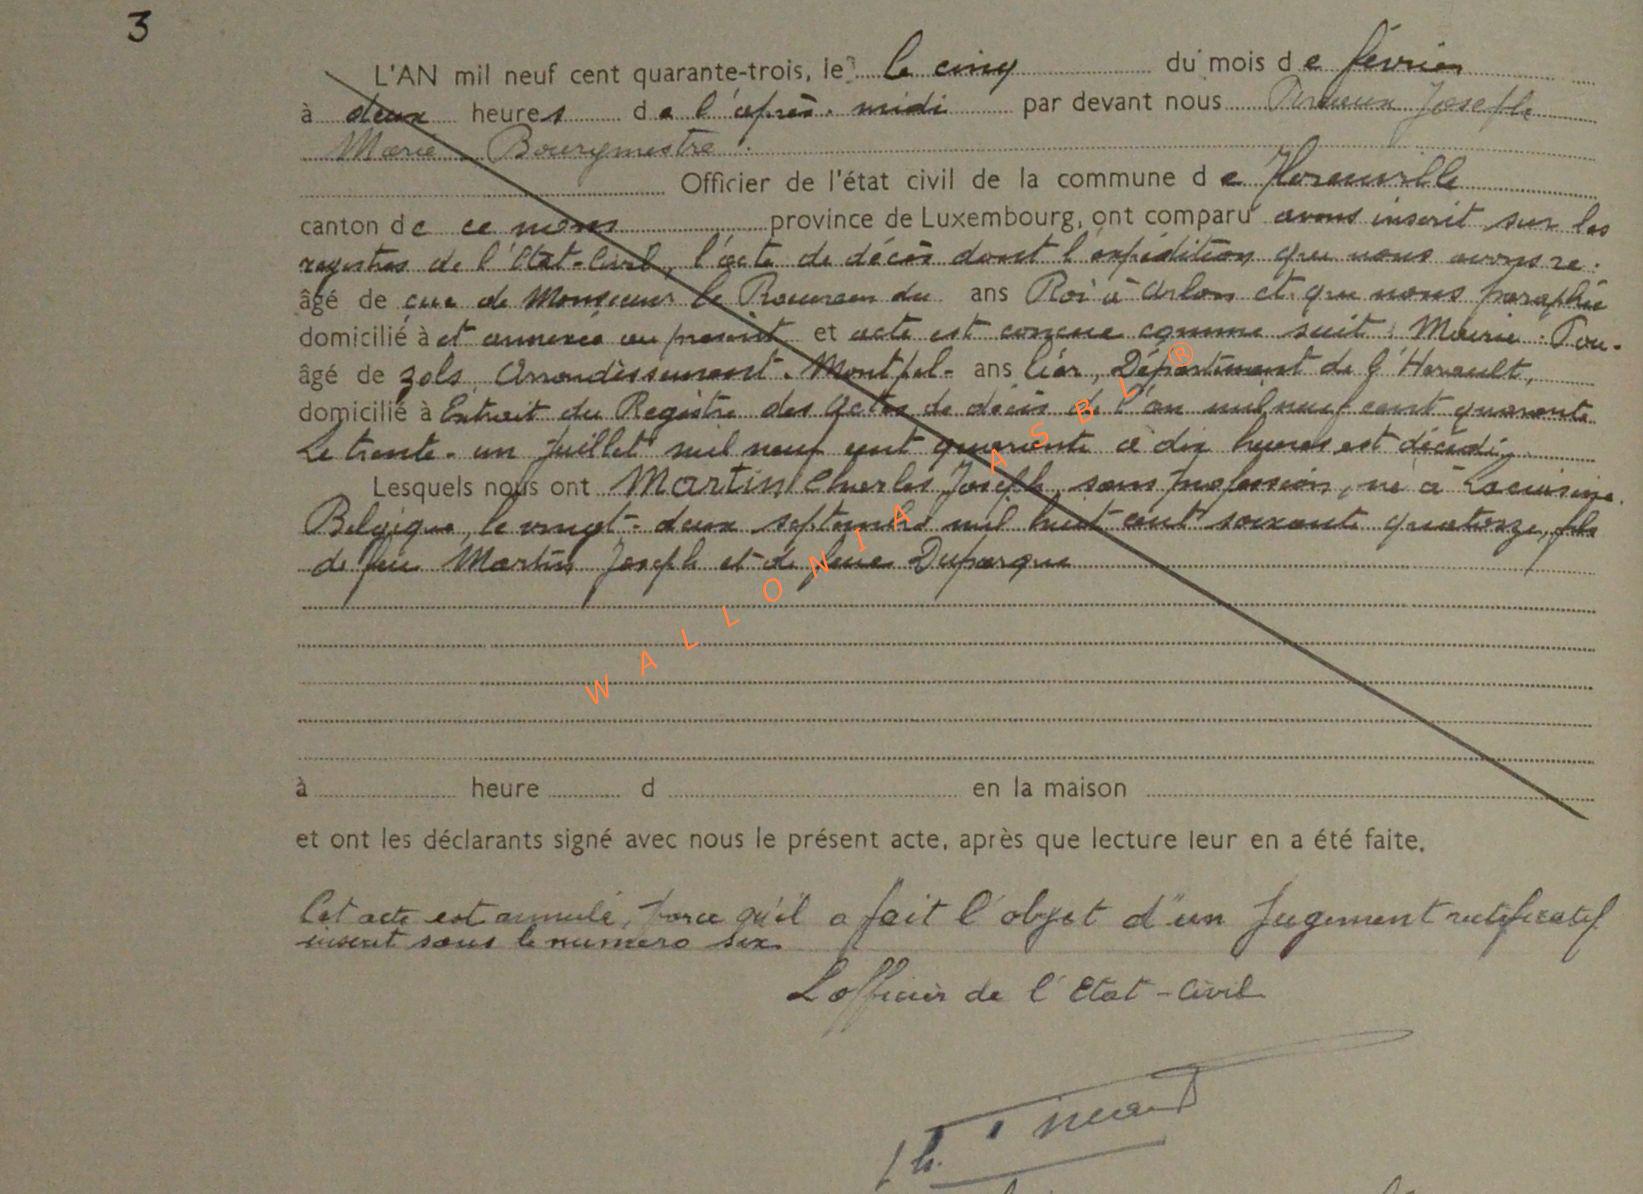 3
L'AN mil neuf cent quarante-trois, le le cinq du mois de février
à deux heures de l'après-midi par devant nous Joseph
Marie Bourgmestre.
Officier de l'état civil de la commune de Florenville
canton de ce nom province de Luxembourg, ont comparu avons inscrit sur les
registres de l'Etat-Civil, l'acte de décès dont l'expédition que nous avons re-
âgé de çue de Monsieur le Procureur du ans Roi à Arlon et que nous paraphée
domicilié à et annexée au présent et acte est conçue comme suit: Mairie: Pou-
âgé de zols, Arrondissement. Montpel- ans lier, Département de l'Herault,
domicilié à Extrait du Registre des Actes de décès de l'an mil neuf cent quarante
Le trente-un Juillet mil neuf cent quarante à dix heures est décédé,
Lesquels nous ont Martin Charles Joseph, sans profession, né à Lacuisine.
Belgique, le vingt-deux septembre mil huit cent soixante quatorze, fils
de feu Martin Joseph et de feue Duparque
à heure d en la maison
et ont les déclarants signé avec nous le présent acte, après que lecture leur en a été faite.
Cet acte est annulé, parce qu'il a fait l'objet d'un Jugement rectificatif
inscrit sous le numéro six.
L'officier de l'Etat-Civil
WALLONIA ASBL ®